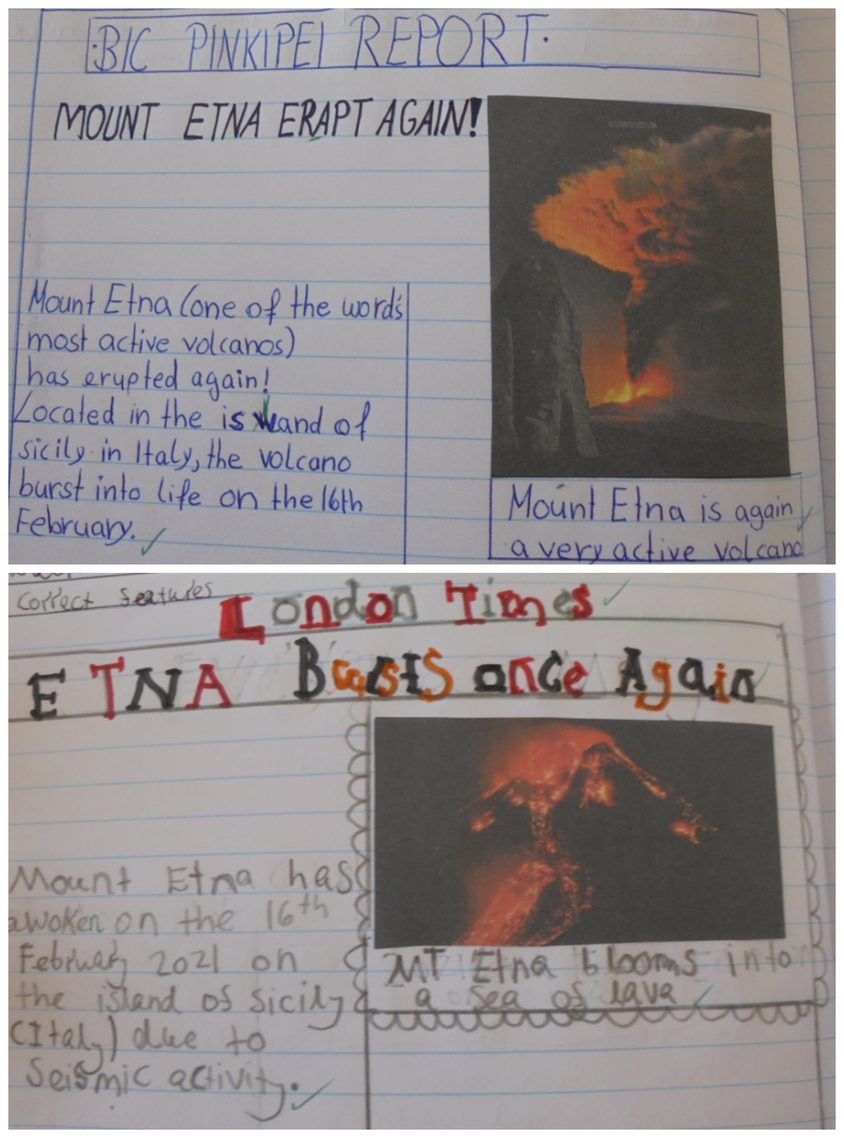 ·BIC PINKIPEI REPORT·
MOUNT ETNA ERAPT AGAIN!
Mount Etna (one of the word's
most active volcanos)
has erupted again!
Located in the island of
sicily in Italy, the volcano
burst into life on the 16th
February.
Mount Etna is again
a very active volcano
Correct features
London Times
ETNA Bursts once Again
Mount Etna has
awoken on the 16th
February 2021 on
the island of sicily
(Italy) due to
Seismic activity.
MT Etna blooms into
a sea of lava